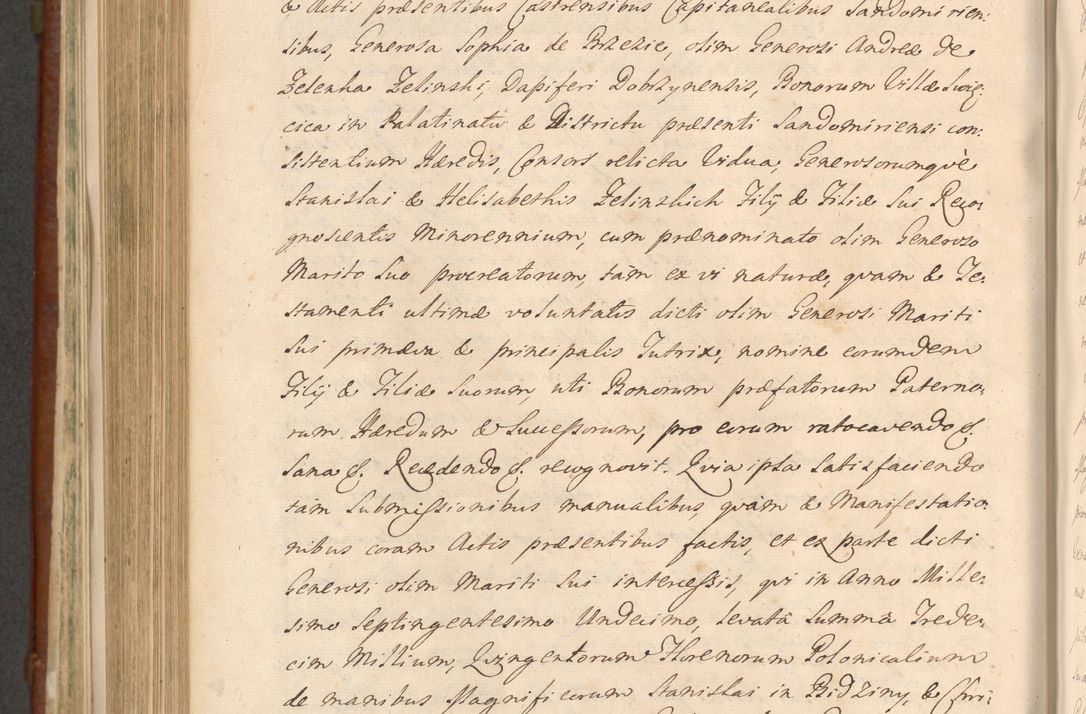 & Actis præsentibus Castrensibus Capitanealibus Sandomirien:
sibus, Generosa Sophia de Brzezie, olim Generosi Andreæ de
Zelenka Zelinski, Dapiferi Dobrzynensis, Bonorum Villæ
cica in Palatinatu & Districtu præsenti Sandomiriensi con:
sistentium Hæredis, Consors relicta Vidua, Generosorumqvè
Stanislai & Helisabethis Zelinskich Filij & Filiæ Sui Recog
gnoscentis Minorennium, cum prænominato olim Generoso
Marito Suo procreatorum, tàm ex vi naturæ, qvam & Te:
stamenti ultimæ voluntatis dicti olim Generosi Mariti
Sui primæva & principalis Tutrix, nomine eorumdem
Filij & Filiæ Suorum, uti Bonorum præfatorum Paterno:
rum Hæredum & Successorum, pro eorum ratocavendo &.
Sana &. Recedendo &. recognovit. Qvia ipsa Satisfaciendo
tàm Submissionibus manualibus, qvàm & Manifestatio:
nibus coram Actis præsentibus factis, et ex parte dicti
Generosi olim Mariti Sui intercessis, qvi in Anno Mille:
simo Septingentesimo Undecimo, levatâ Summâ Trede:
cim Millium, Qvingentorum Florenorum Polonicalium
de manibus Magnificorum Stanislai in Bidziny, & Chri: